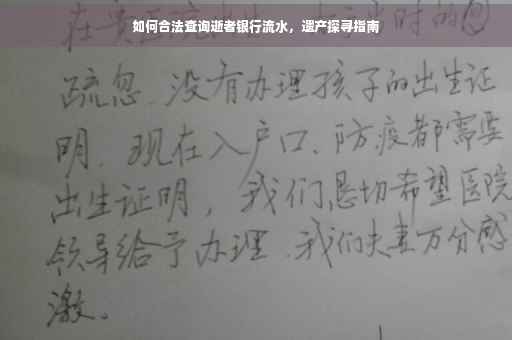 如何合法查询逝者银行流水，遗产探寻指南
在贵医院 时的
疏忽.没有办理孩子的出生证
明.现在入户口、防疫都需要
出生证明，我们恳切希望医院
领导给予办理.我们夫妻万分感
激。